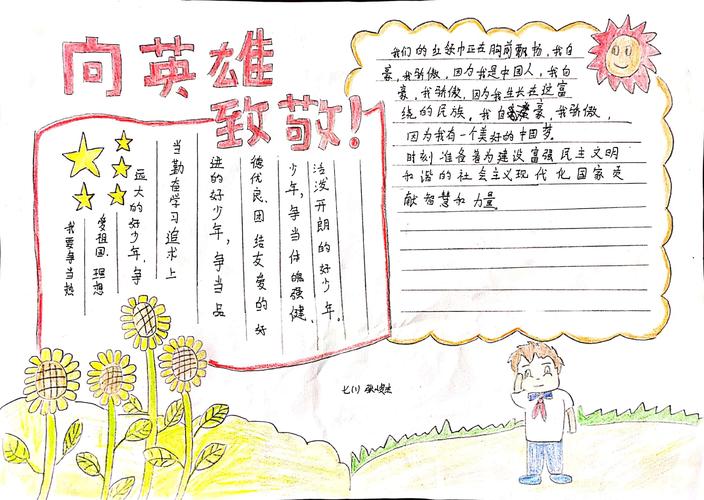 向英雄
致敬!
我要争当热
爱祖国、理想
远大的好少年、争
当勤奋学习追求上
进的好少年,争当品
德优良、团结友爱的好
少年,争当体魄强健、
活泼开朗的好少年。
我们的红领巾正在胸前飘畅,我自
豪,我骄傲,因为我是中国人,我自
豪,我骄傲,因为我生长在这富
绕的民族,我自豪,我骄傲,
因为我有一个美好的中国梦。
时刻准备着为建设富强民主文明
和谐的社会主义现代化国家贡
献智慧和力量
七(1)